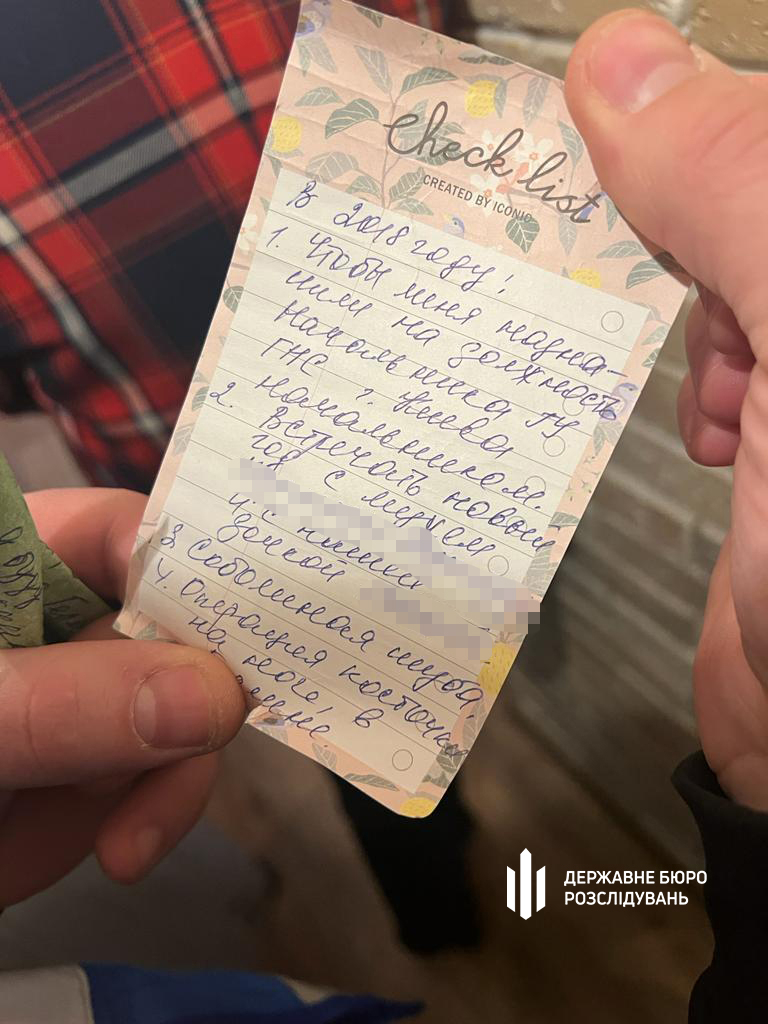 Check list
CREATED BY ICONIC
В 2018 году!
1. Чтобы меня назна-
чили на должность
начальника ГУ
ГНС г. Киева
начальником.
2. Встречать новый
год с мужем
и
дочкой
3. Соболинная шуба,
4. Операция косточки
на ноге в
ДЕРЖАВНЕ БЮРО
РОЗСЛІДУВАНЬ